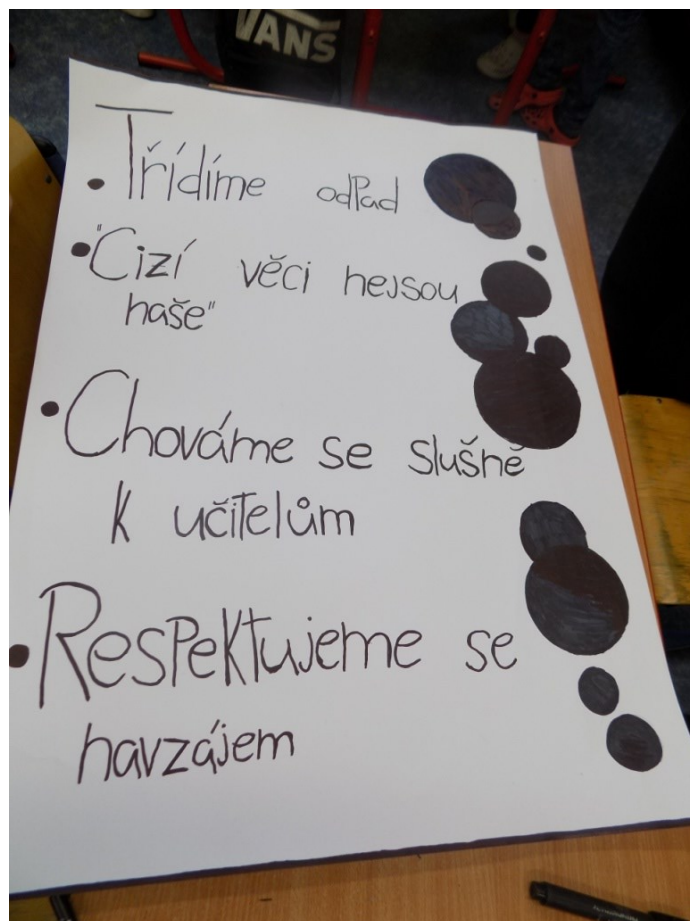 VANS
• Třídíme odpad
• "Cizí věci nejsou
naše"
• Chováme se slušně
k učitelům
• Respektujeme se
navzájem